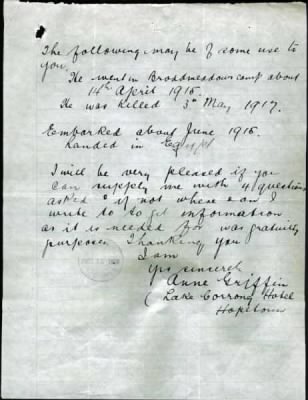 The following may be of some use to
you.
He went in Broadmeadows camp about
14th April 1916.
He was killed 3rd May 1917.
Embarked about June 1916.
Landed in Egypt
I will be very pleased if you
can supply me with 4 questions
asked & if not where can I
write to to get information
as it is needed for war gratuity
purposes. Thanking you
I am
yrs sincerely
Anne Griffin
Lake Corrong Hotel
Hopetoun